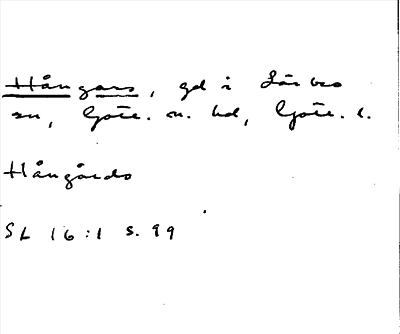 Hångars, gd i Lärbro
sn, Gotl. n. hd, Gotl. l.
Hångårds
SL 16:1 s. 99